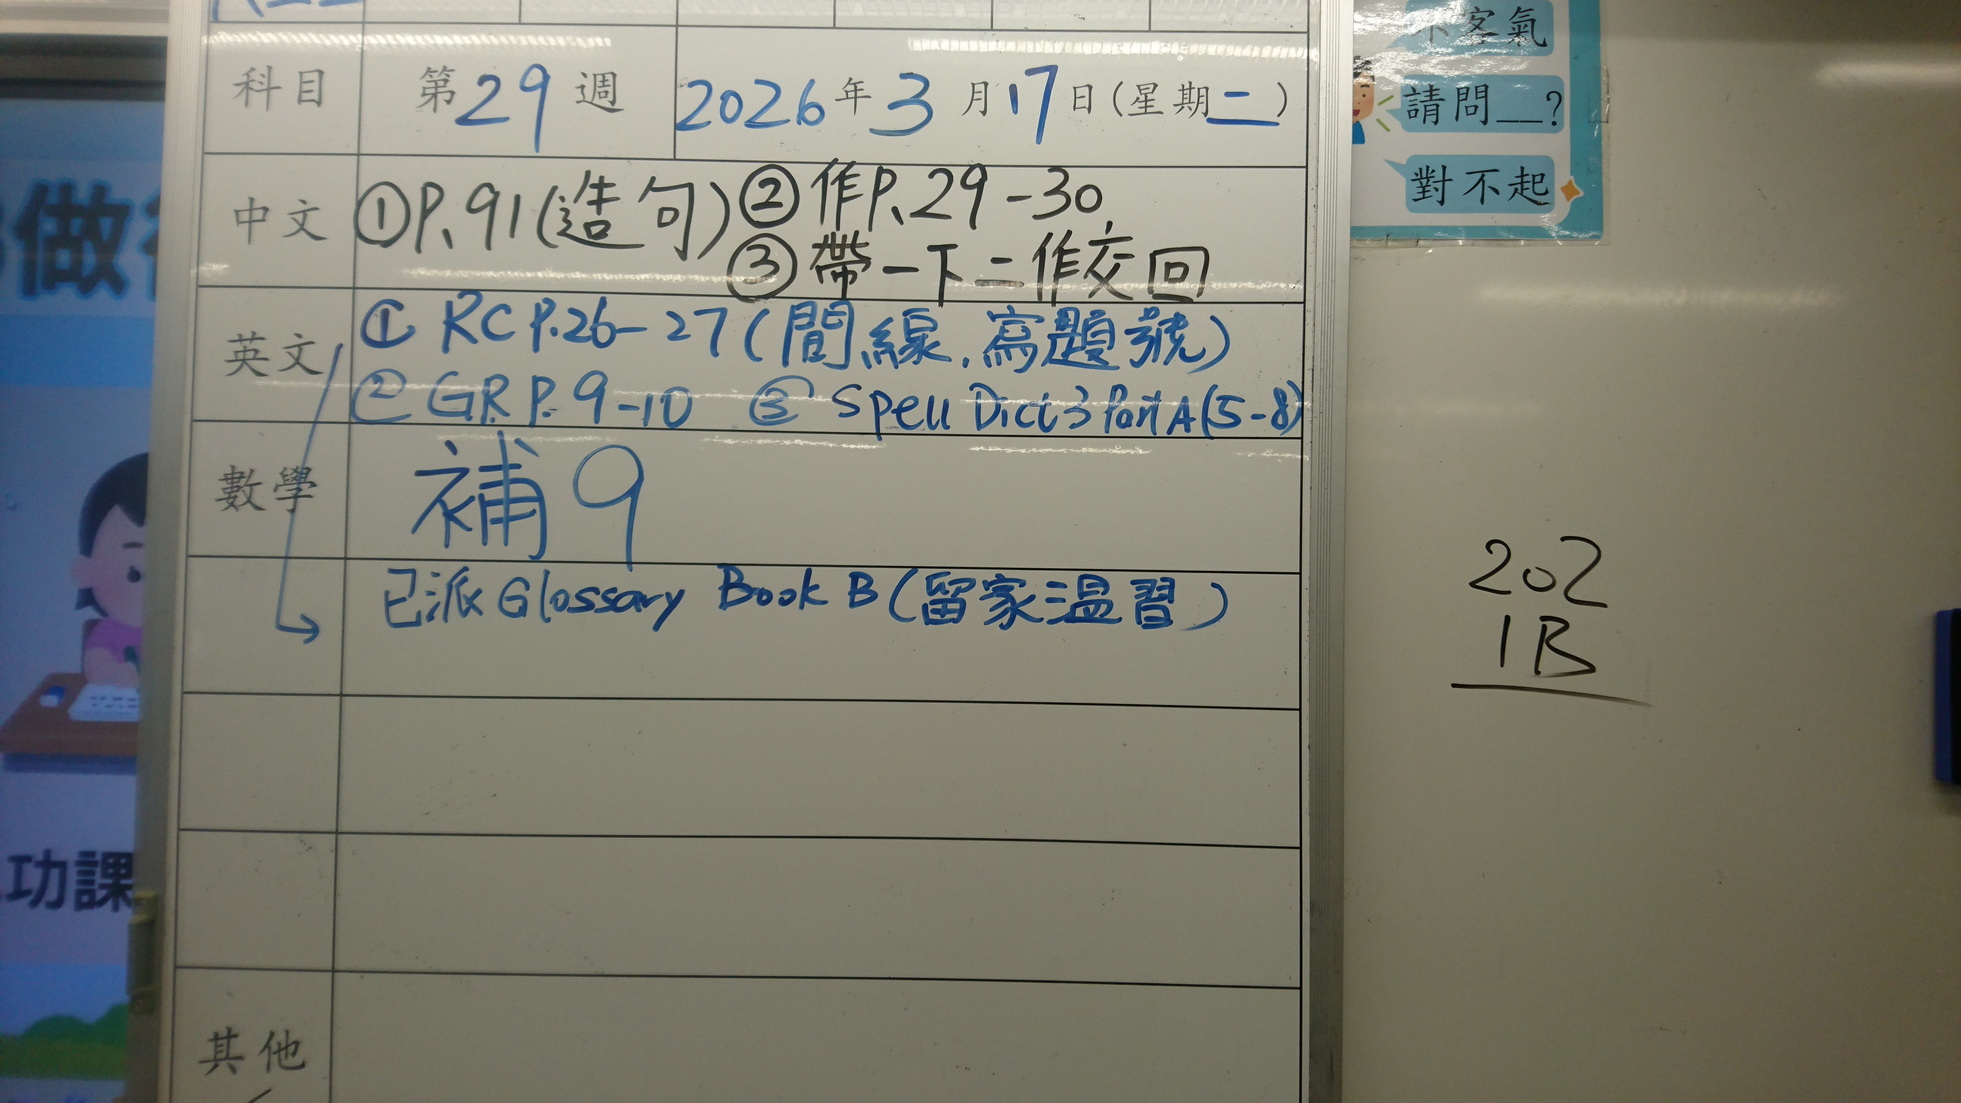 客氣
請問__?
對不起
做
功課
科目 第29週 2026年3月17日(星期二)
中文 ①P.91(造句) ②作P.29-30
③帶一下二作交回
英文 ①RC P.26-27(間線,寫題號)
②GR P.9-10 ③Spell Dict 3 Part A(5-8)
數學 補9
已派Glossary Book B(留家溫習)
其他
202
1B